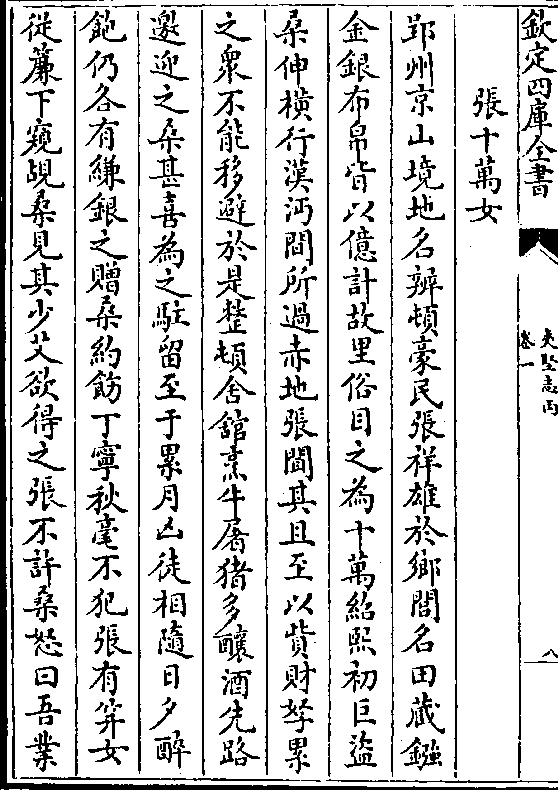 欽定四庫全書
夷堅志丙
卷一
八
張十萬女
郢州京山境地名辨頓豪民張祥雄於鄉閭名田藏鏹
金銀布帛皆以億計故里俗目之為十萬紹熙初巨盜
桑伸橫行漢沔間所過赤地張聞其且至以貲財孥累
之衆不能移避於是整頓舍館烹牛屠猪多釀酒先路
邀迎之桑甚喜為之駐留至于累月凶徒相隨日夕醉
飽仍各有縑銀之贈桑約飭丁寧秋毫不犯張有筓女
從簾下窺覘桑見其少艾欲得之張不許桑怒曰吾業